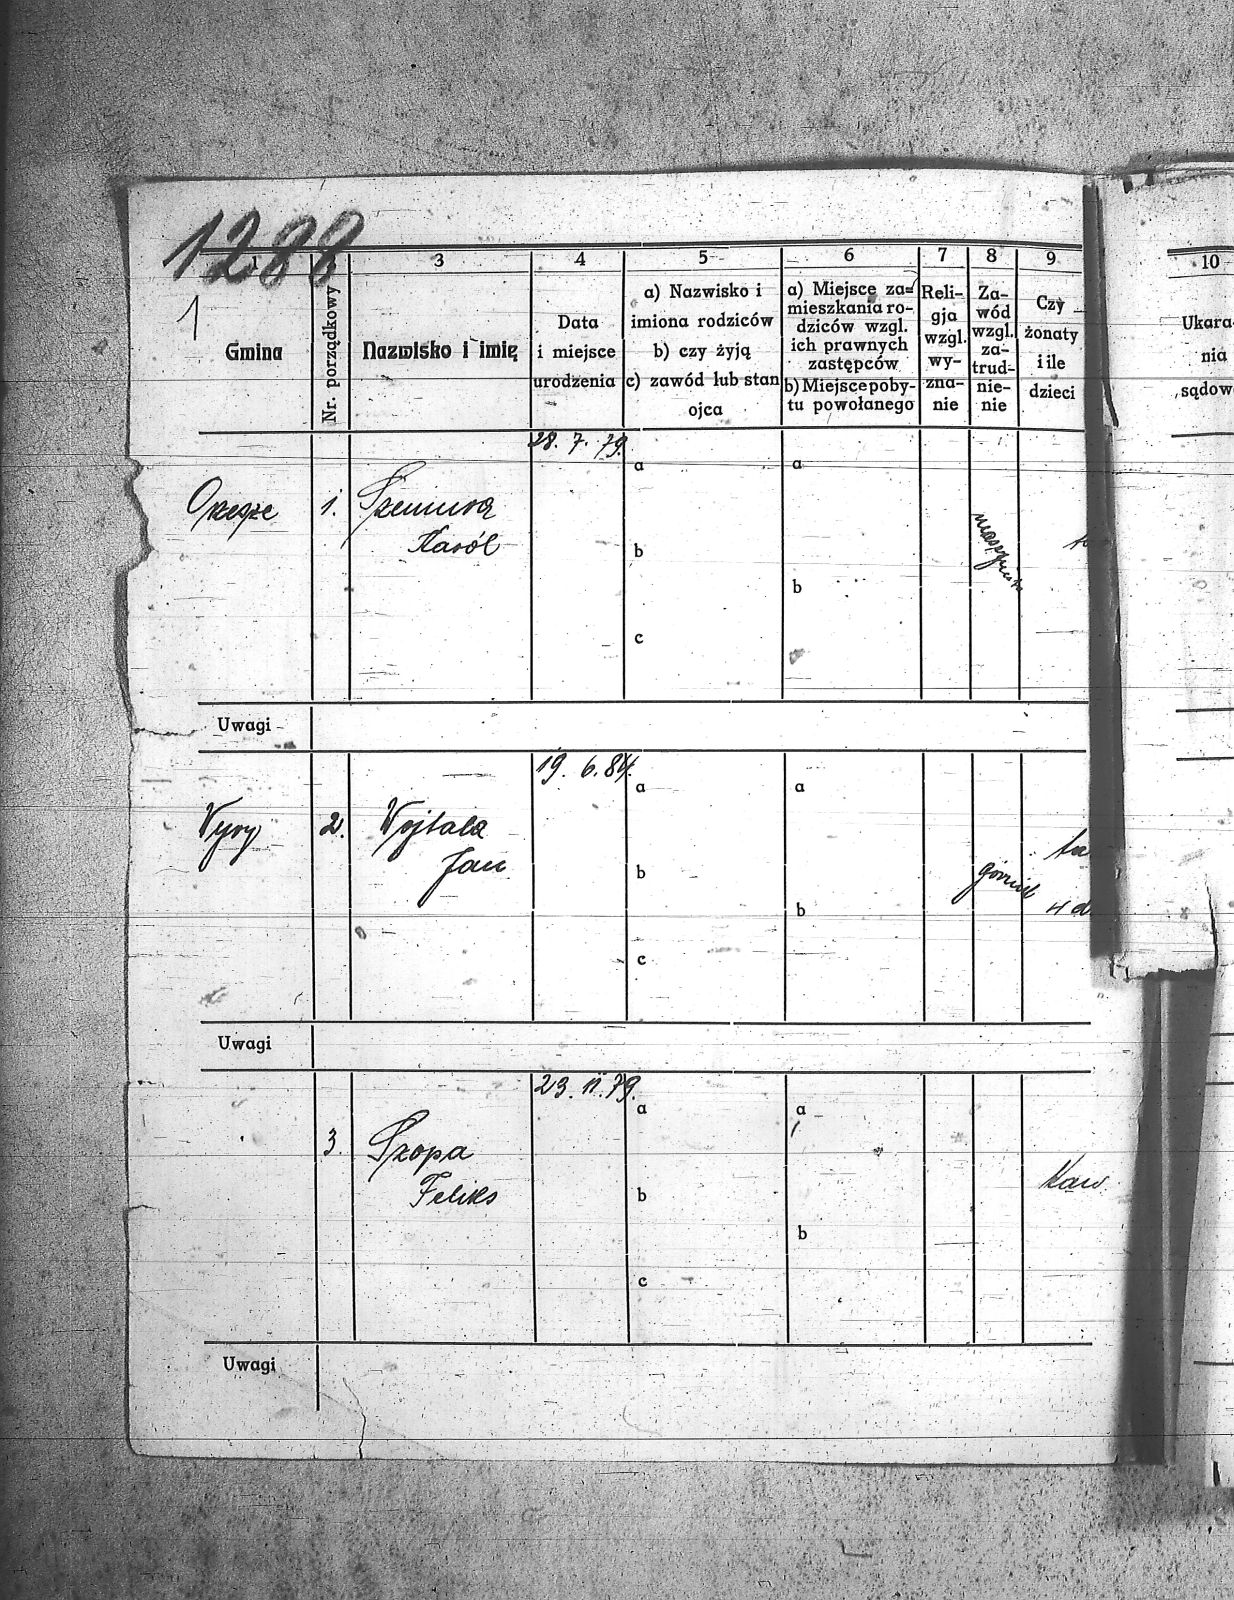 1288
1
1
3
4
5
6
7
8
9
10
Gmina
Nr. porządkowy
Nazwisko i imię
Data
i miejsce
urodzenia
a) Nazwisko i
imiona rodziców
b) czy żyją
c) zawód lub stan
ojca
a) Miejsce za-
mieszkania ro-
dziców wzgl.
ich prawnych
zastępców
b) Miejsce poby-
tu powołanego
Reli-
gja
wzgl.
wy-
zna-
nie
Za-
wód
wzgl.
za-
trud-
nie-
nie
Czy
żonaty
i ile
dzieci
Ukara-
nia
sądow
28. 7. 79.
Orzesze 1.
Karól
a
b
c
a
b
Uwagi
19. 6. 84.
Wyry 2. Wojtala
Jan
a
b
c
a
b
górnik
4 d
Uwagi
23. 11. 79.
3. Szopa
Feliks
a
b
c
a
b
Kaw
Uwagi